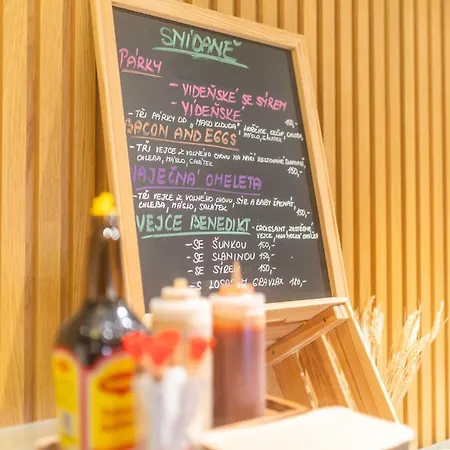 SNÍDANĚ
PÁRKY
- VÍDEŇSKÉ SE SÝREM
- VÍDEŇSKÉ
- TŘI PÁRKY OD „MASO KLOUDA" HOŘČICE, KEČUP, CHLEBA,
MÁSLO, SALÁTEK
BACON AND EGGS
- TŘI VEJCE Z VOLNÉHO CHOVU NA
CHLEBA, MÁSLO, SALÁTEK 150,-
VAJEČNÁ OMELETA
- TŘI VEJCE Z VOLNÉHO CHOVU, SÝR A BABY ŠPENÁT,
CHLEBA, MÁSLO, SALÁTEK 150,-
VEJCE BENEDIKT - CROISSANT, ZASTŘENÉ
VEJCE, HOLANDSKÁ OMÁČKA
- SE ŠUNKOU 150,-
- SE SLANINOU
- SE SÝREM 150,-
- S LOSOS GRAVLAX 180,-
MAGGI